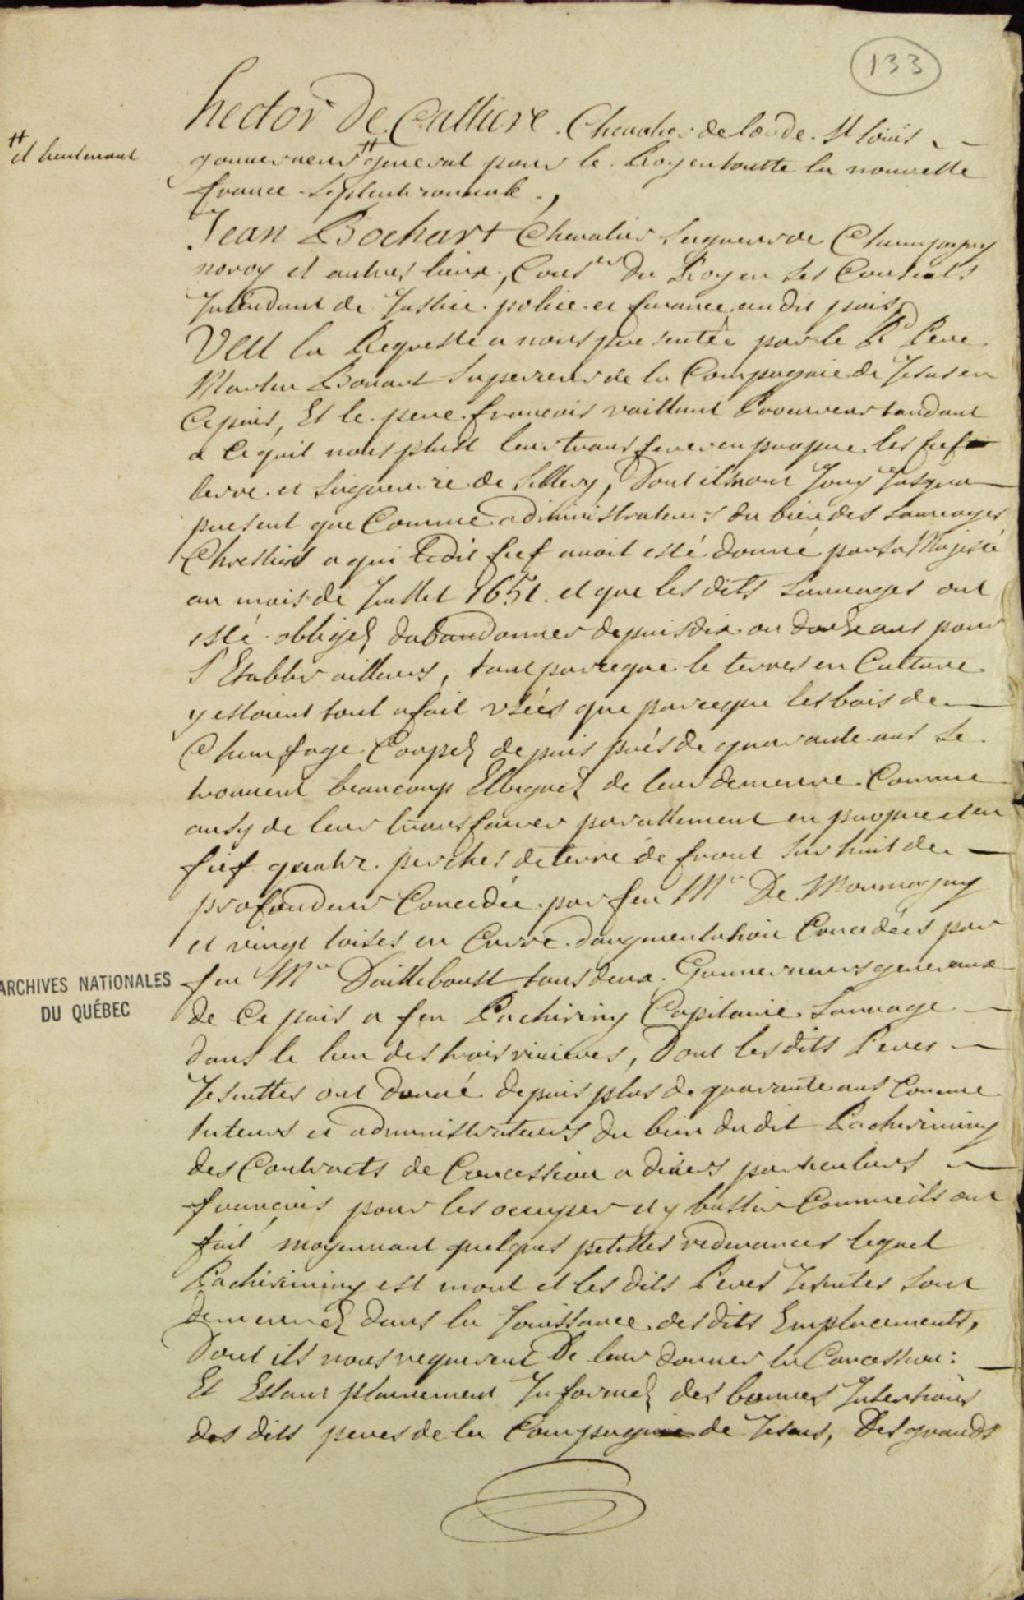 133
hector De Calliere. Chevalier de l'ordre St Louis
# et lieutenant
gouverneur # general pour le Roy en toutte la nouvelle
france septentrionnale.,
Jean Bochart Chevalier seigneur de Champigny
noroy et autres lieux, Conser du Roy en ses Conseils
Intendant de Justice police et finance audit pais
Veu la Requeste a nous presentée par le R Pere
Martin Bouvart superieur de la Compagnie de Jesus en
Ce pais, Et le pere francois vaillant Procureur tandant
a Ce quil nous plust leur transferer en propre les fief
terre et seigneurie de Sillery, Dont ils nont Jouy Jusqua
present que Comme administrateurs du bien des sauvages
Chrestiens a qui Ledit fief avoit esté donné par sa Majesté
au mois de Juillet 1651. et que les dits sauvages ont
esté obligez dabandonner depuis dix ou douze ans pour
s'Etablir ailleurs, tant parceque le terres en Culture
y estoient tout afait usées que parceque les bois de
Chauffage Coupez depuis prés de quarante ans se
trouvent beaucoup Elloignez de leur demeure Comme
aussy de leur transferer parellement en propre et en
fief quatre perches de terre de front sur huit de
profondeur Concedée par feu Mr De Monmagny
et vingt toises en Carré daugmentation Concedées par
feu Mr Dailleboust tous deux Gouverneurs generaux
ARCHIVES NATIONALES
DU QUÉBEC
de Ce pais a feu Pachiriny Capitaine sauvage
dans le lieu des trois rivieres, Dont les dits Peres
Jesuittes ont donné depuis plus de quarante ans Comme
tuteurs et administrateurs du bien du dit Pachirininy
des Contracts de Concession a divers particuliers
francois pour les occuper et y bastir Comme ils ont
fait moyennant quelques petittes redevances lequel
Pachirininy est mort et les dits Peres Jesuites sont
demeurez dans la Jouissance des dits Emplacements,
Dont ils nous requerent De leur donner la Concession:
Et Estant plainement Informez des bonnes Intentions
des dits peres de la Compagnie de Jesus, Des grands